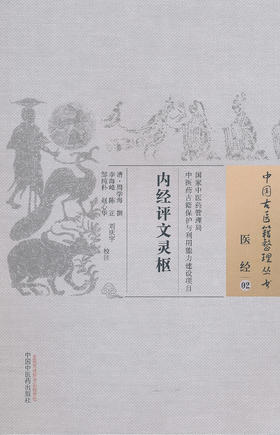 中国古医籍整理丛书
医经
02
国家中医药管理局
中医药古籍保护与利用能力建设项目
内经评文灵枢
清·周学海 撰
李海峰 陈正 刘庆宇
邹纯朴 赵心华 校注
中国中医药出版社